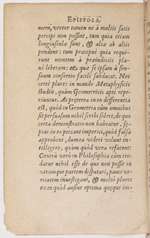 EPISTOLA.
norem, vereor tamen ne à multis satis
percipi non possint, tum quia etiam
longiusculæ sunt, & aliæ ab aliis
pendent; tum præcipuè quia requi-
runt mentem à præjudiciis pla-
nè liberam; & quæ se ipsam à sen-
suum consortio facilè subducat. Nec
certè plures in mundo Metaphysicis
studiis, quàm Geometricis apti repe-
riuntur. Ac præterea in eo differentia
est, quòd in Geometriâ cùm omnibus
sit persuasum nihil scribi solere, de quo
certa demonstratio non habeatur, sæ-
pius in eo peccant imperiti, quòd falsa
approbent, dum ea videri volunt in-
telligere, quàm quòd vera refutent:
Contrà verò in Philosophiâ cùm cre-
datur nihil esse de quo non possit in
utramque partem disputari, pauci ve-
ritatem investigant, & multò plures
ex eo quòd ausint optima quæque im-